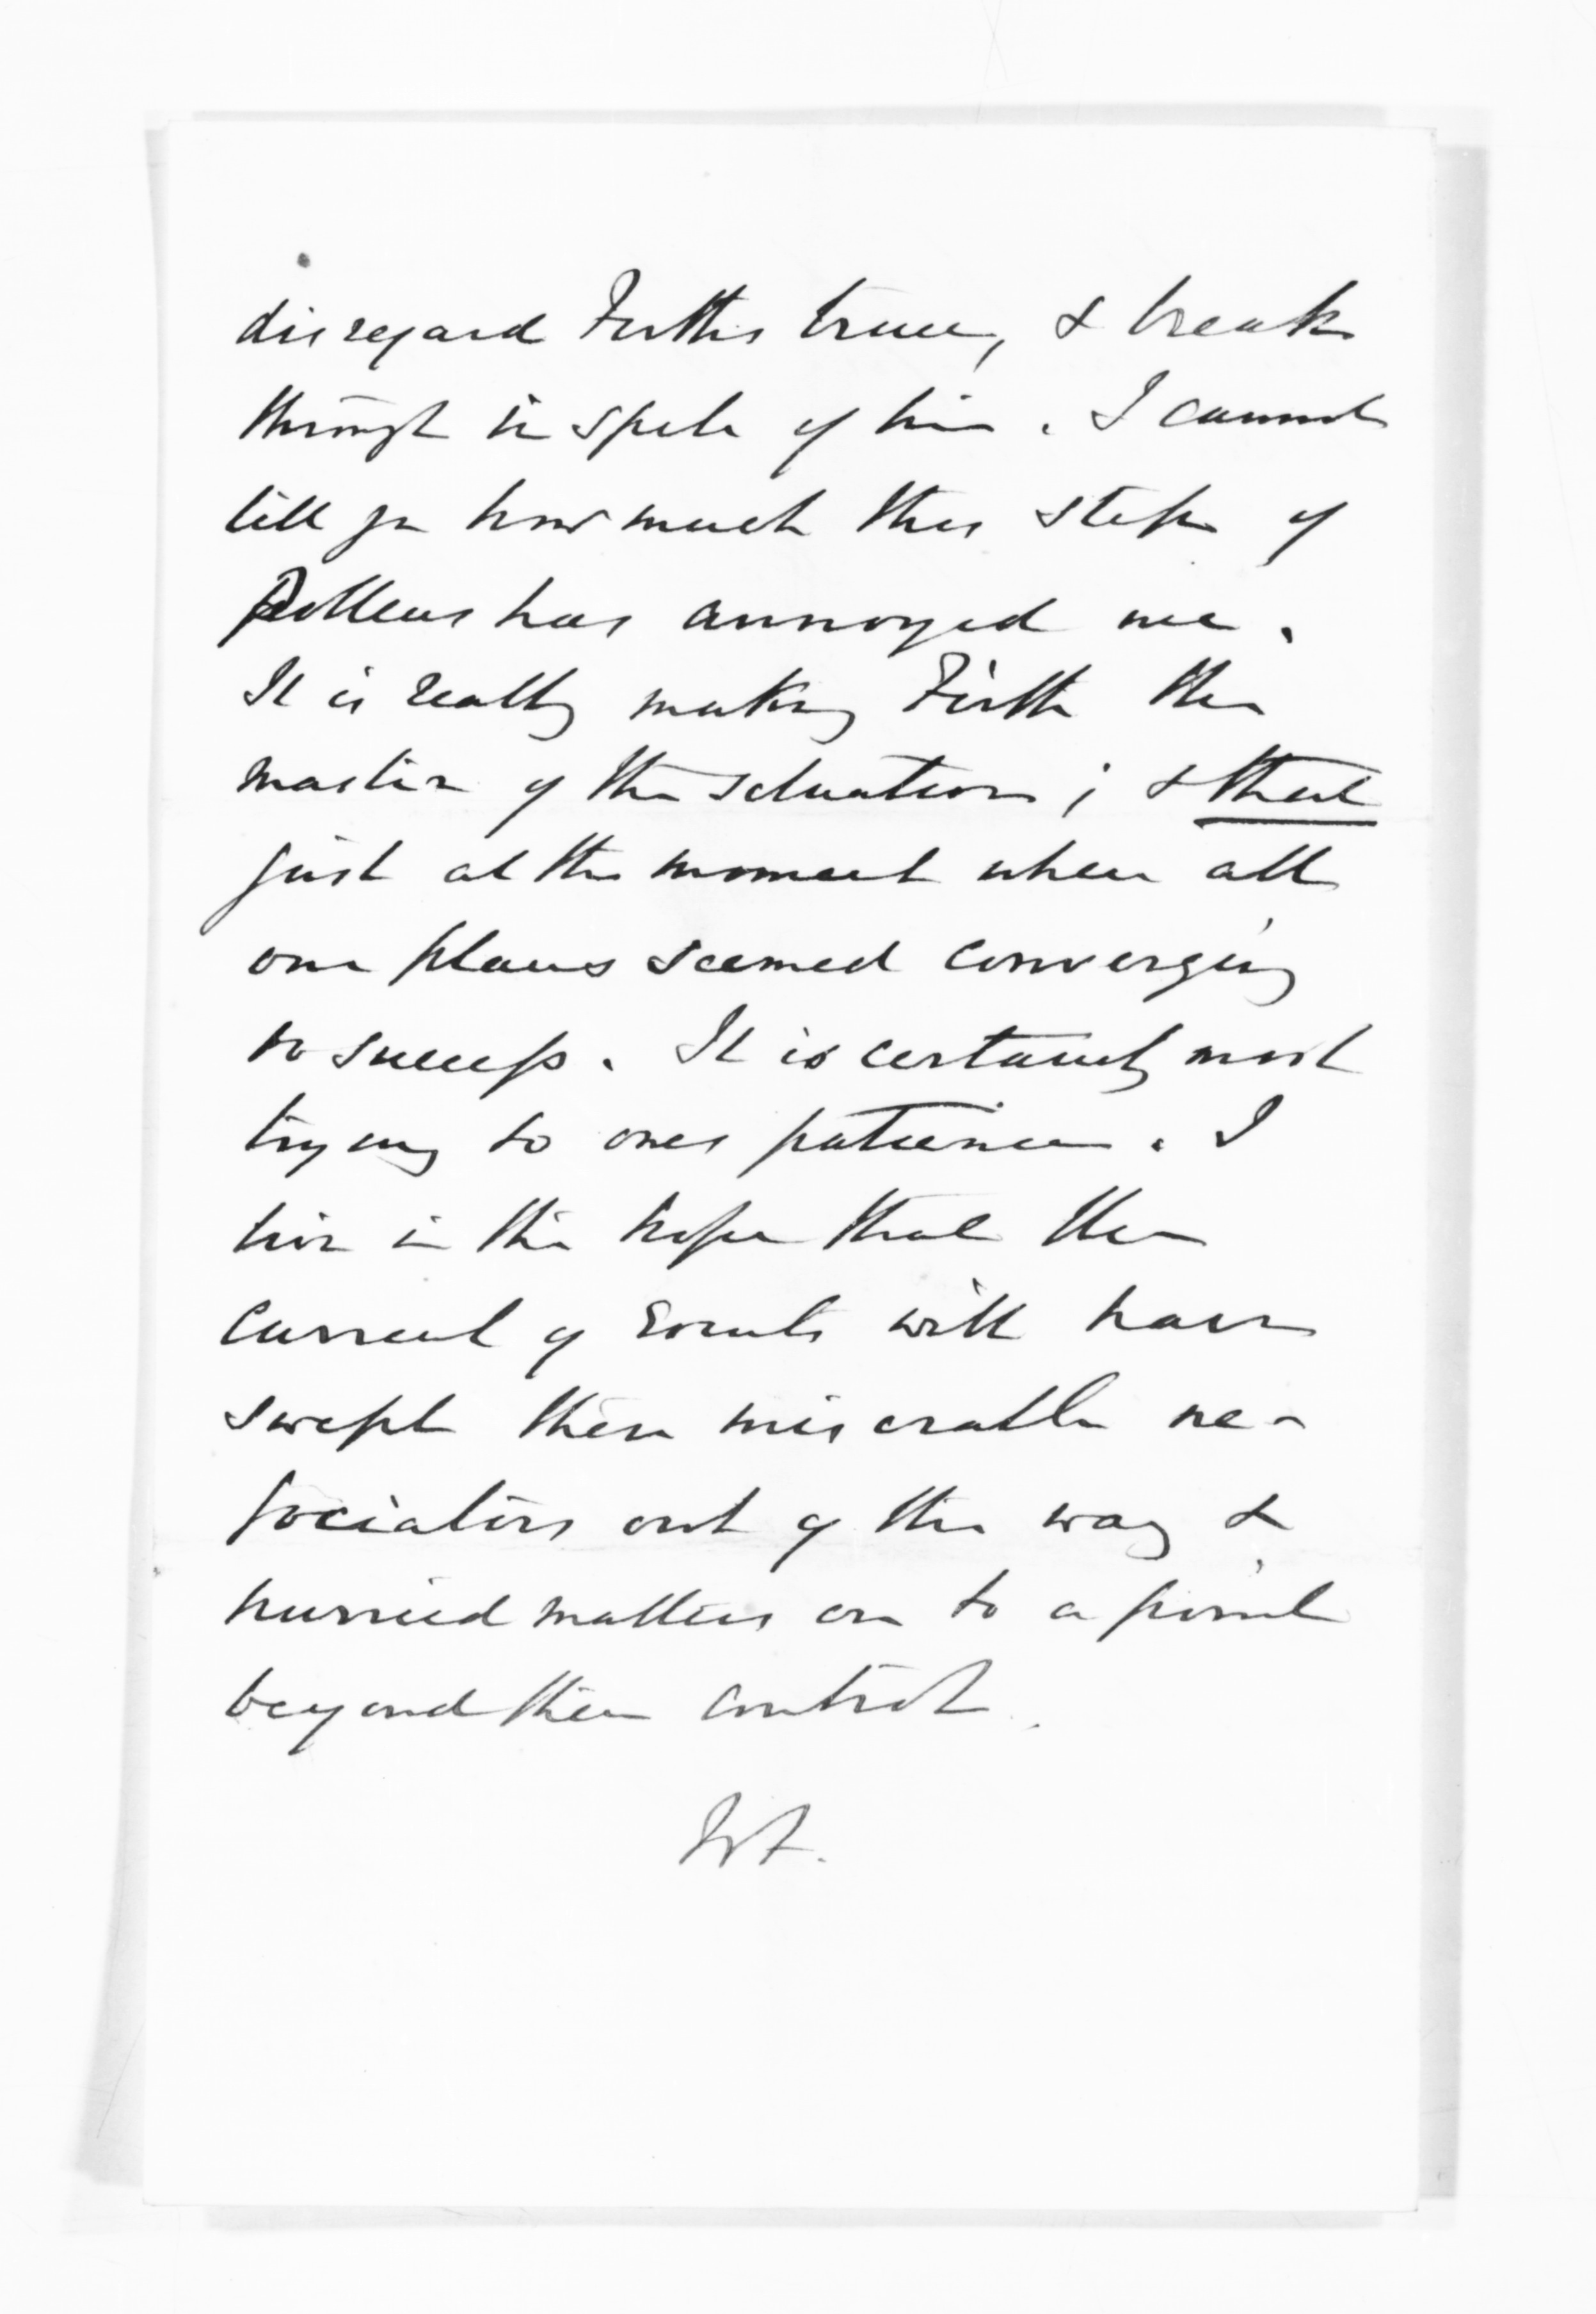 disregard Firth's truce, & break
through in spite of him. I cannot
tell you how much this step of
has annoyed me.
It is really making Firth the
master of the situation; & that
just at the moment when all
our plans seemed converging
to success. It is certainly most
trying to ones patience. I
live in the hope that the
current of events will have
swept these miserable ne-
gociators out of the way &
hurried matters on to a point
beyond their control.